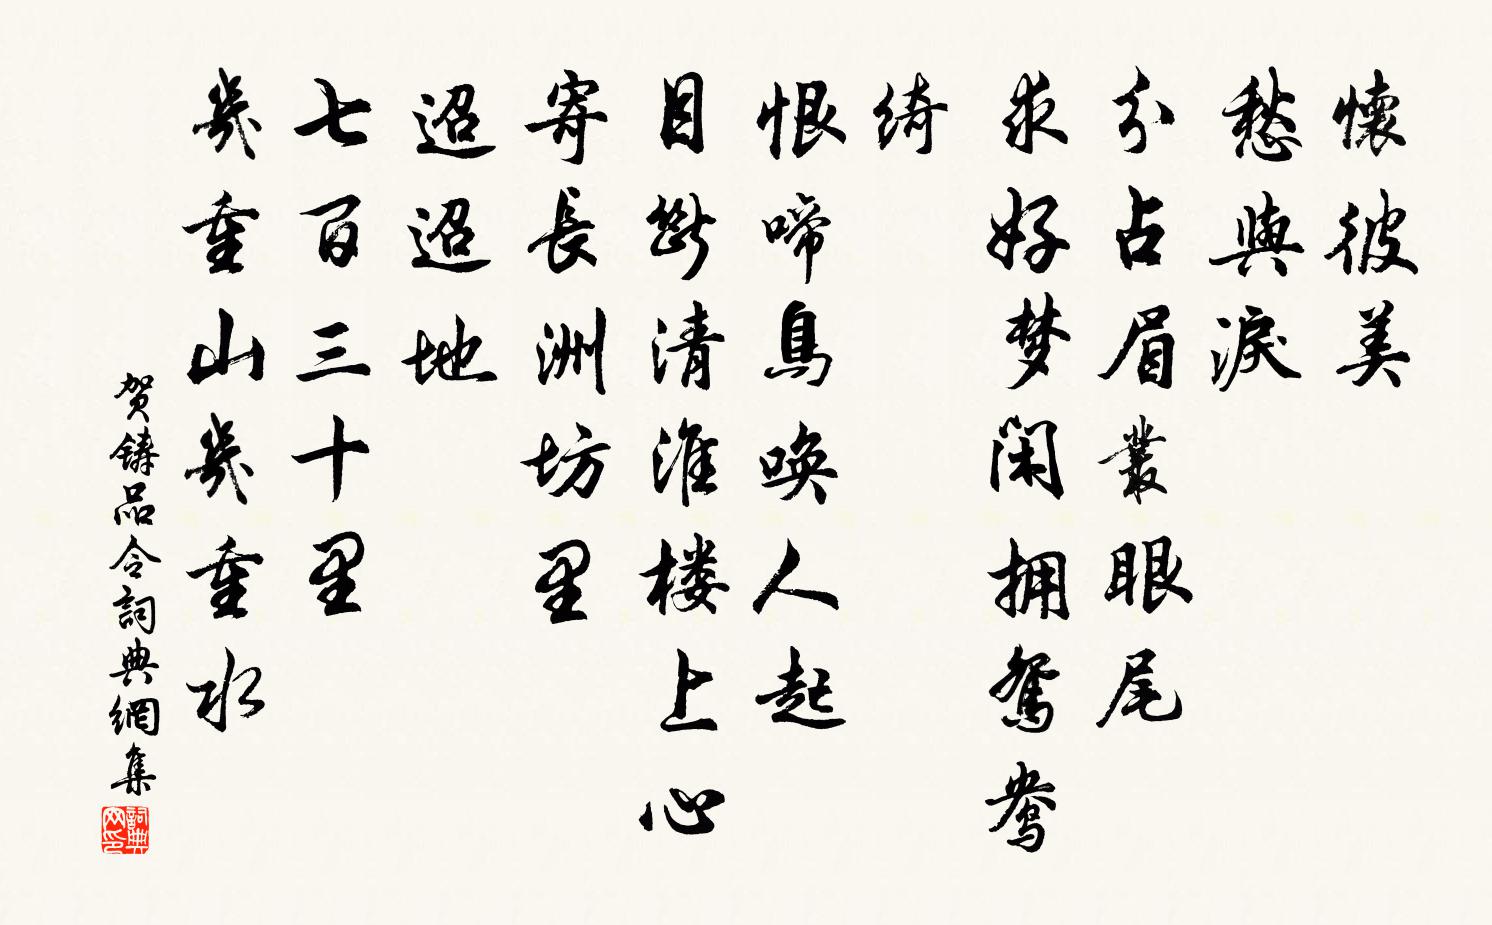 懷彼美
愁與淚
分占眉叢眼尾
求好梦闲拥鴛鴦
绮
恨啼鳥唤人起
目斷清淮楼上心
寄長洲坊里
迢迢地
七百三十里
幾重山幾重水
贺铸品令詞典網集
詞典
网印